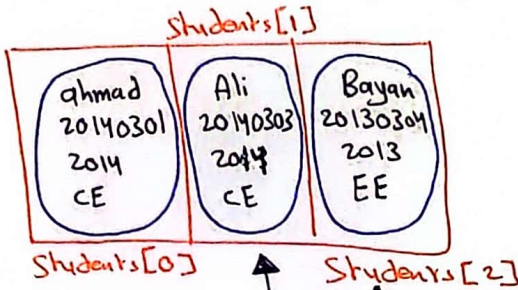 Students[1]
ahmad
20140301
2014
CE
Ali
20140303
2014
CE
Bayan
20130304
2013
EE
Students[0]
Students[2]